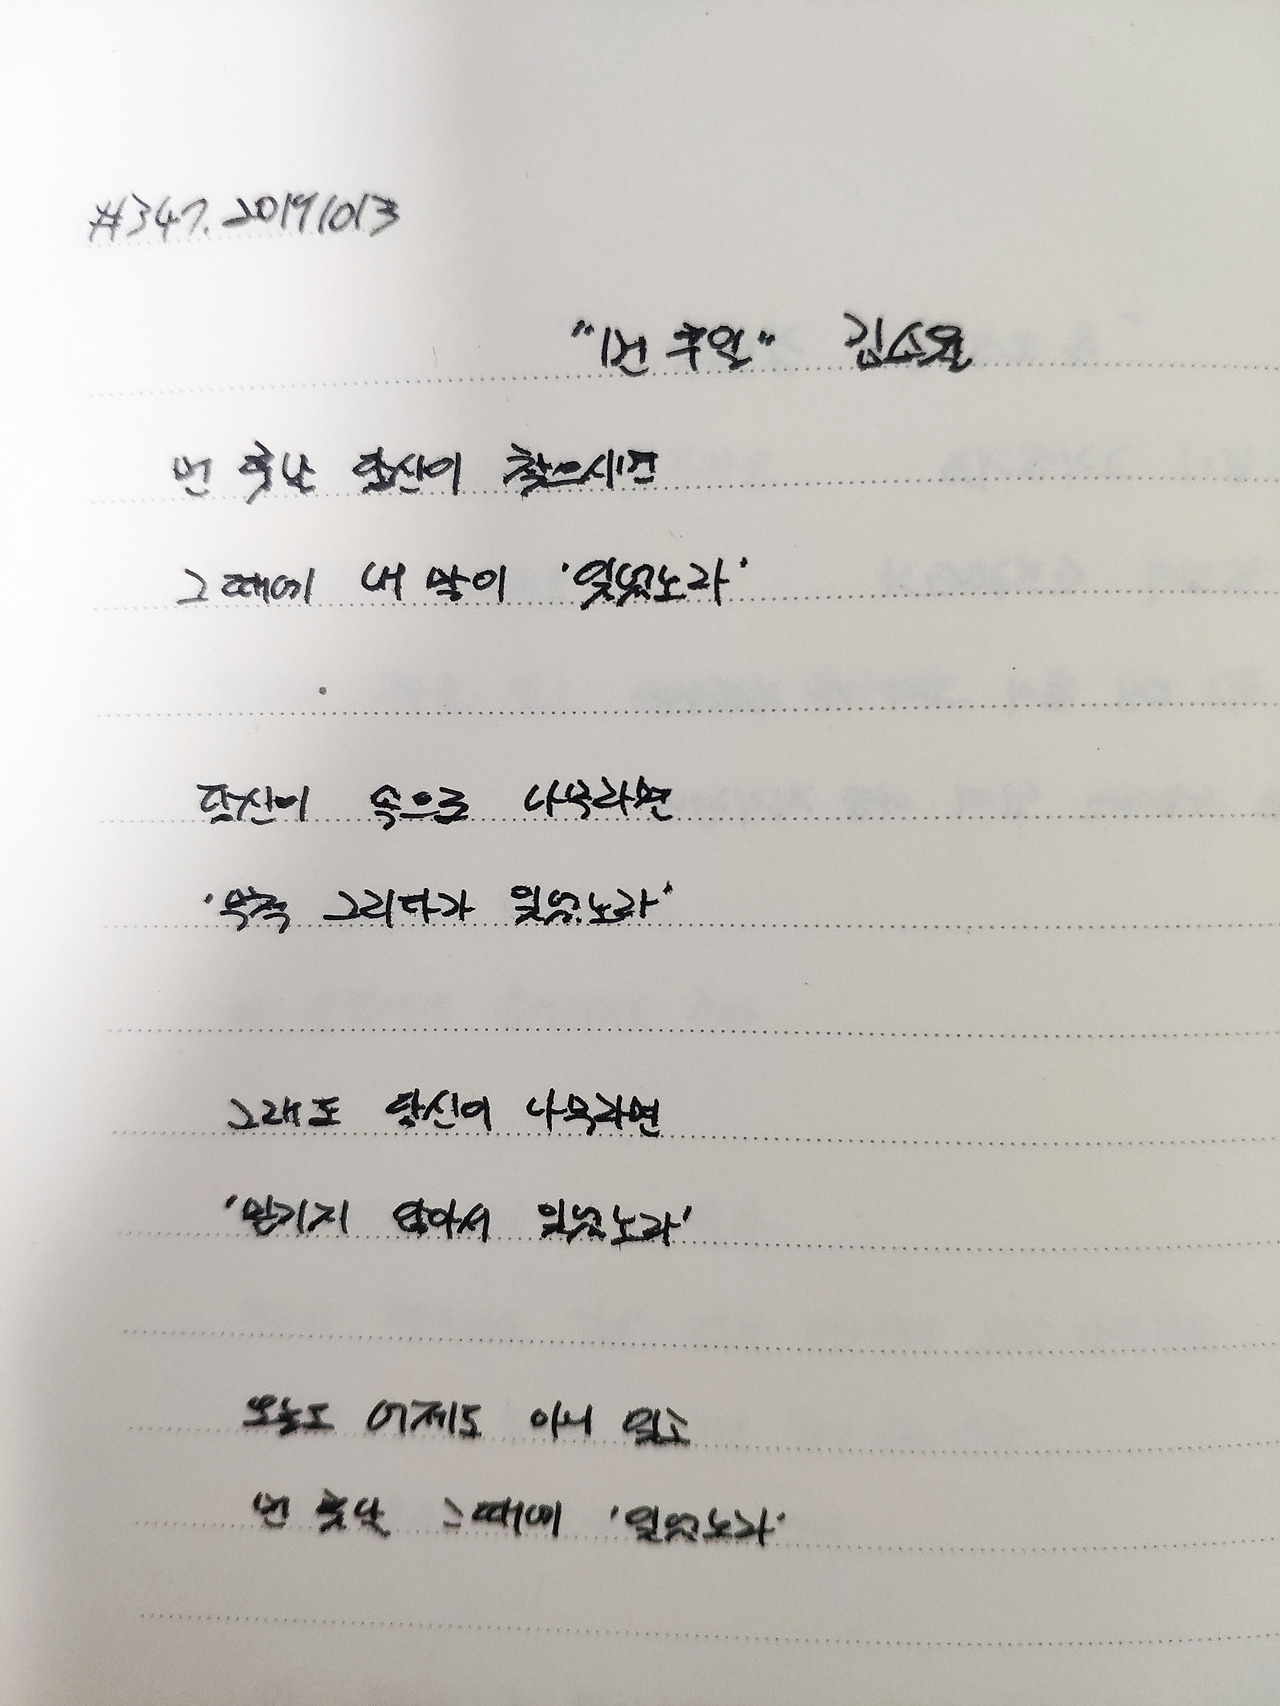 #347. 20191013
"먼 후일" 김소월
먼 훗날 당신이 찾으시면
그때에 내 말이 '잊었노라'
당신이 속으로 나무라면
'무척 그리다가 잊었노라'
그래도 당신이 나무라면
'믿기지 않아서 잊었노라'
오늘도 어제도 아니 잊고
먼 훗날 그때에 '잊었노라'